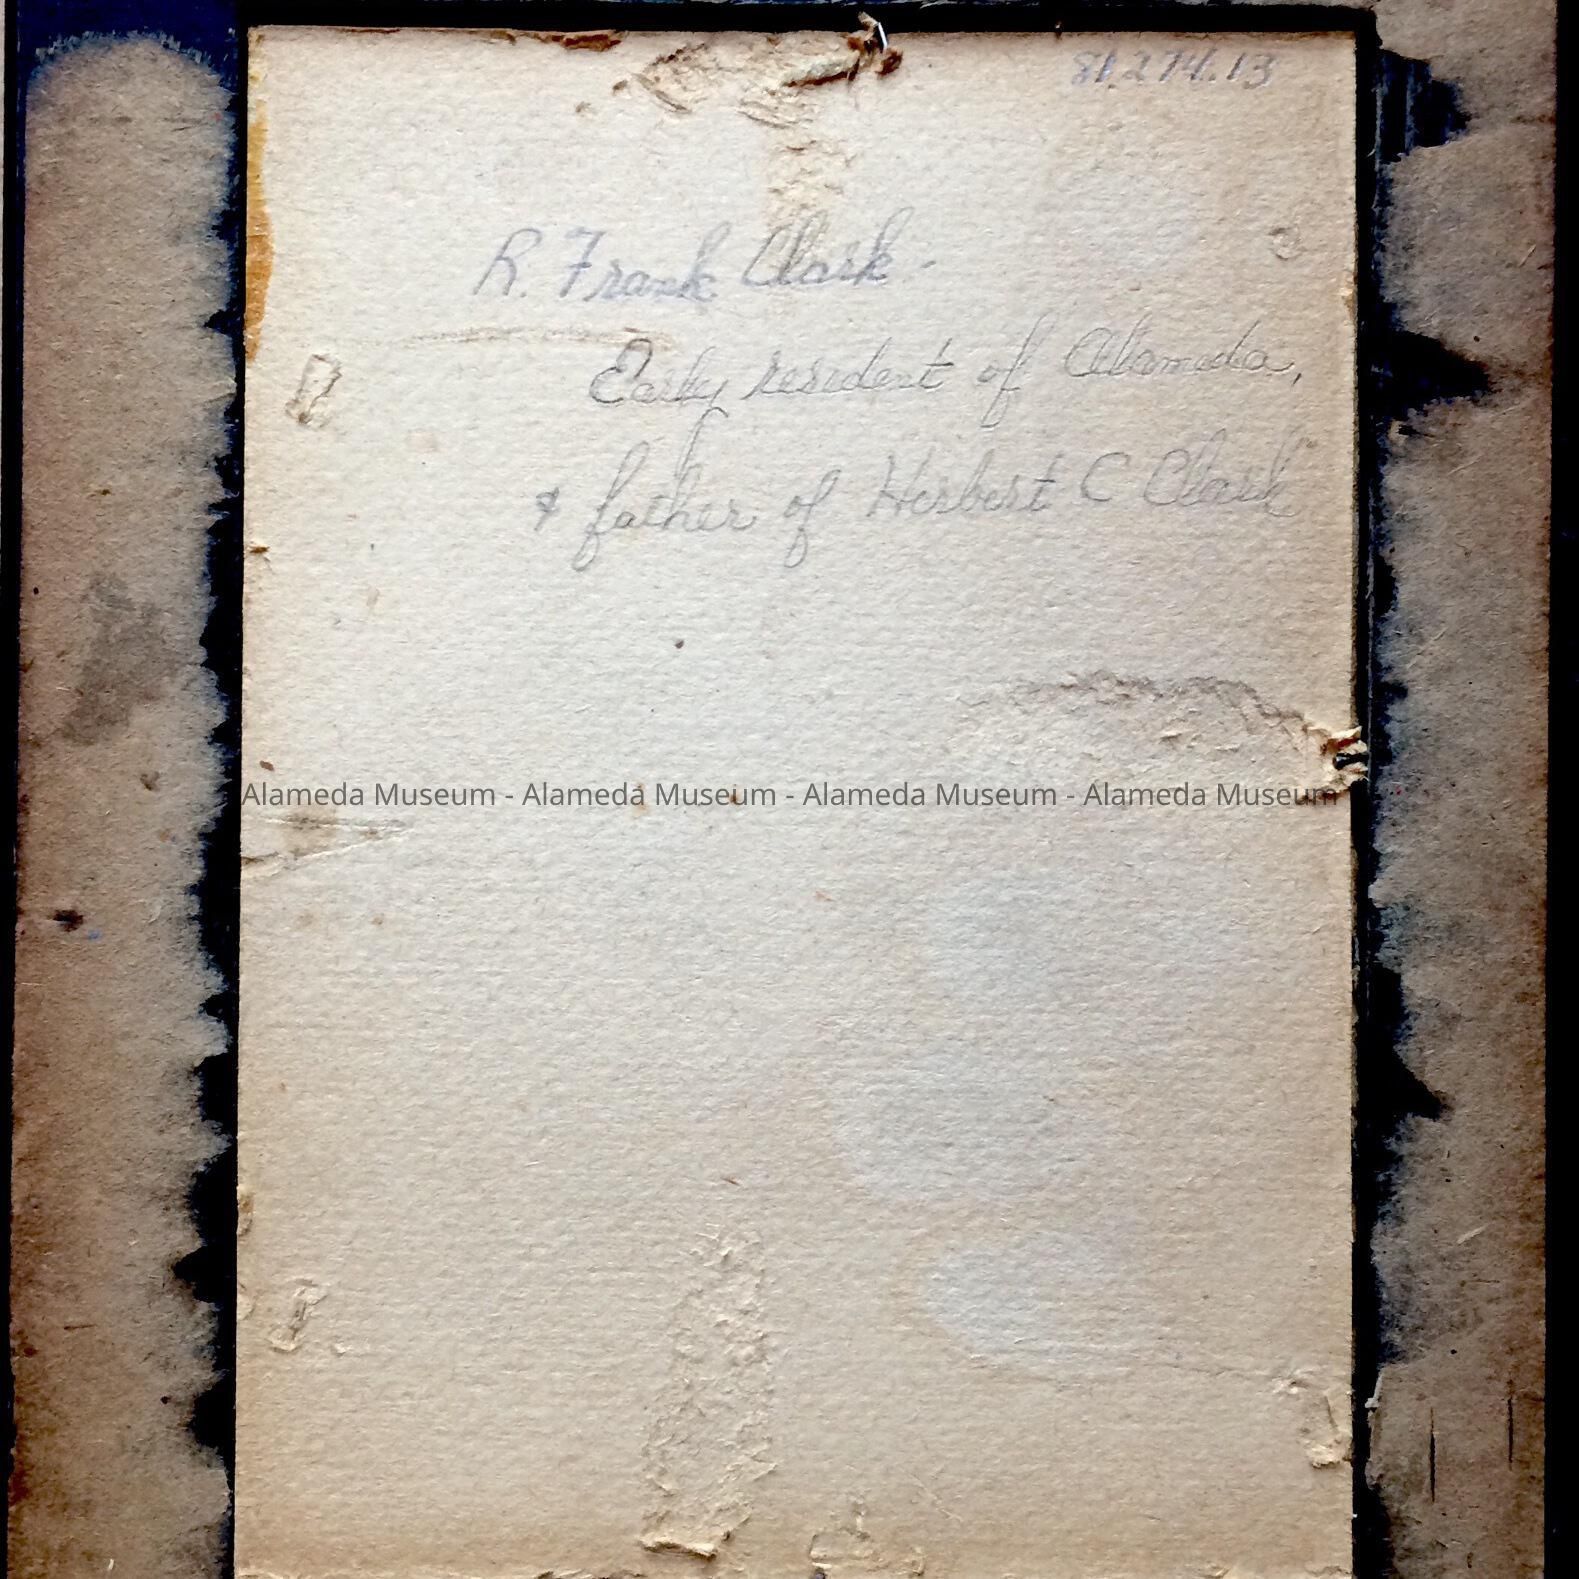 81.274.13
R. Frank Clark -
Early resident of Alameda,
& father of Herbert C Clark
Alameda Museum - Alameda Museum - Alameda Museum - Alameda Museum